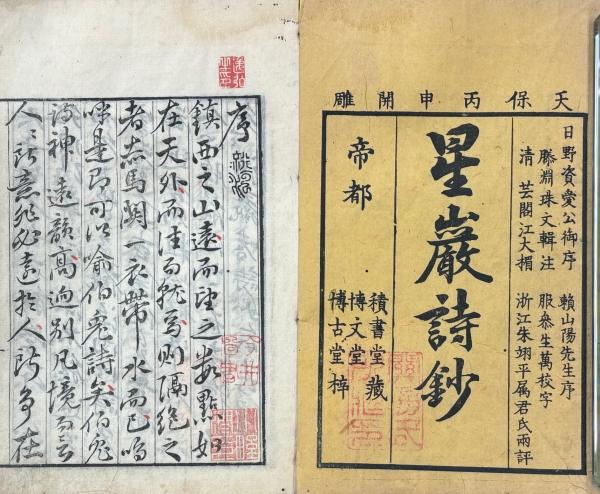 天保丙申開雕
日野資愛公御序　賴山陽先生序
滕淵珠文輯注　服叅生萬校字
清　芸閣江大楣　浙江朱翊平属君氏兩評
星巖詩鈔
帝都
積書堂藏
博文堂
博古堂梓
序
鎮西之山遠而望之數點如
在天外而往而就焉則隔絶之
者赤馬關一衣帶水而已嗚
呼是即可以喻伯兎詩矣伯兎
詩神遠韻高逈別凡境而言
人人所意非必遠於人所多在